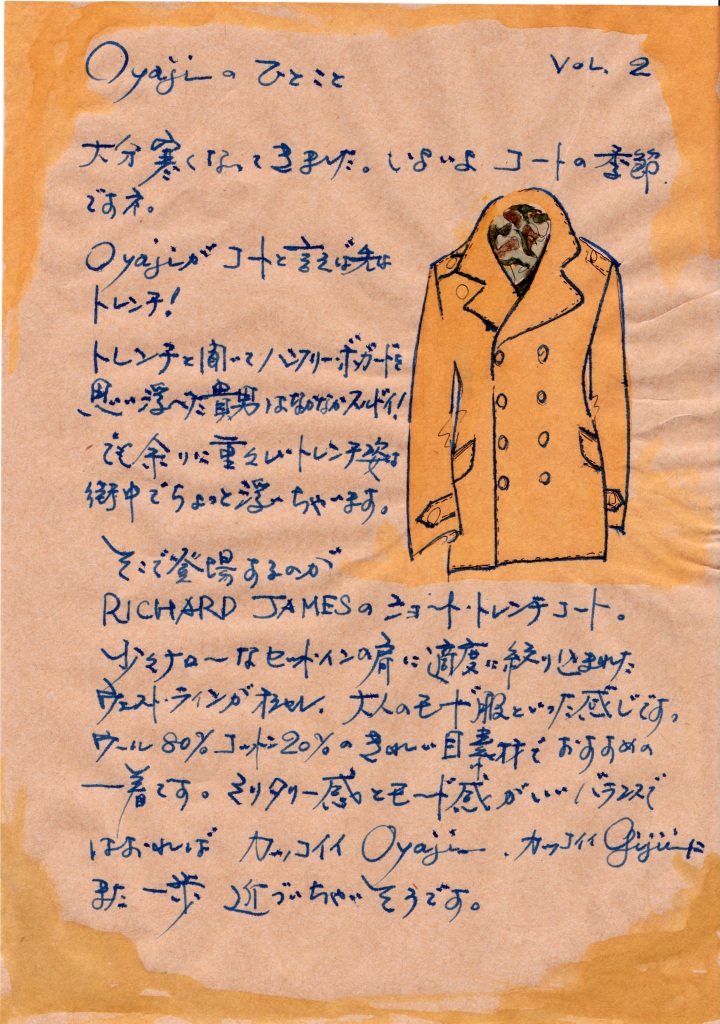 Oyajiのひとこと
VOL. 2
大分寒くなってきました。いよいよ コートの季節
ですネ。
Oyajiが コートと言えば先は
トレンチ!
トレンチと聞いてハンフリー・ボガードを
思い浮べた貴男はなかなかスルドイ!
でも余りに重々しいトレンチ姿は
街中でちょっと浮いちゃいます。
そこで登場するのが
RICHARD JAMESのショート・トレンチコート。
少々ナローなセットインの肩に適度に絞り込まれた
ウェスト・ラインがオシャレ、大人のモード服といった感じです。
ウール80%コットン20%のきれい目素材でおすすめの
一着です。ミリタリー感とモード感がいいバランスで
はおれば カッコイイ Oyaji、カッコイイ Gijiiに
また一歩 近づいちゃいそうです。